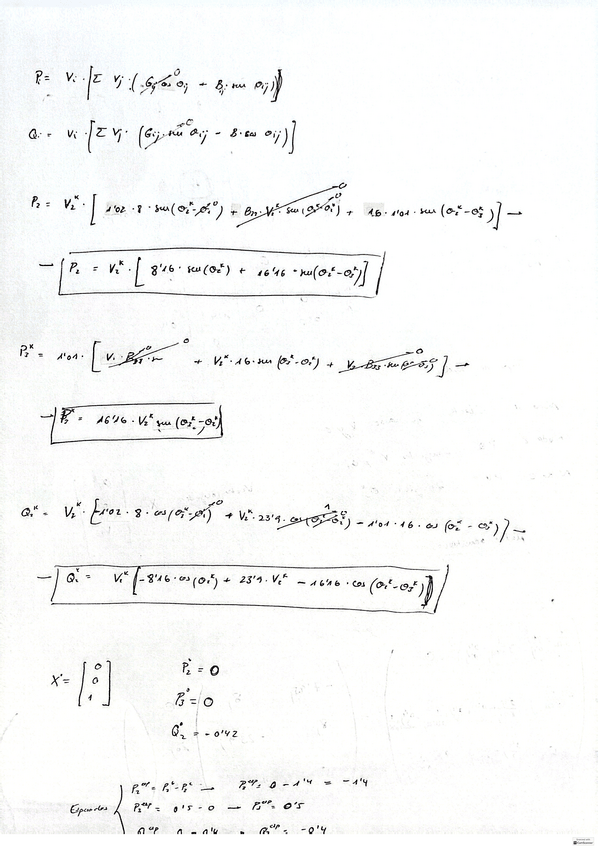 Pi = Vi · [Σ Vj · (Gij cos θij + Bij · sen θij)]
Qi = Vi · [Σ Vj · (Gij · sen θij - B · cos θij)]
P₂ = V₂ᵏ · [1'02 · 8 · sen(θ₂ᵏ - θ₁) + B₂₂ · V₂ᵏ · sen(θ₂ᵏ - θ₂ᵏ) + 16 · 1'01 · sen(θ₂ᵏ - θ₃ᵏ)] →
→ P₂ = V₂ᵏ · [8'16 · sen(θ₂ᵏ) + 16'16 · sen(θ₂ᵏ - θ₃ᵏ)]
P₃ᵏ = 1'01 · [V₁ · + V₂ᵏ · 16 · sen(θ₃ᵏ - θ₂ᵏ) + V₃ · B₃₃ · sen ] →
→ P₃ᵏ = 16'16 · V₂ᵏ sen(θ₃ᵏ - θ₂ᵏ)
Q₂ᵏ = V₂ᵏ · [-1'02 · 8 · cos(θ₂ᵏ - θ₁) + V₂ᵏ · 23'9 · cos(θ₂ᵏ - θ₂ᵏ) - 1'01 · 16 · cos(θ₂ᵏ - θ₃ᵏ)] →
→ Q₂ᵏ = V₂ᵏ [-8'16 · cos(θ₂ᵏ) + 23'9 · V₂ᵏ - 16'16 · cos(θ₂ᵏ - θ₃ᵏ)]
X° = [0 0 1]
P₂° = 0
P₃° = 0
Q₂° = -0'42
P₂ᵉˢᵖ = → P₂ᵉˢᵖ = 0 - 1'4 = -1'4
P₃ᵉˢᵖ = 0'5 - 0 → P₃ᵉˢᵖ = 0'5
= -0'4